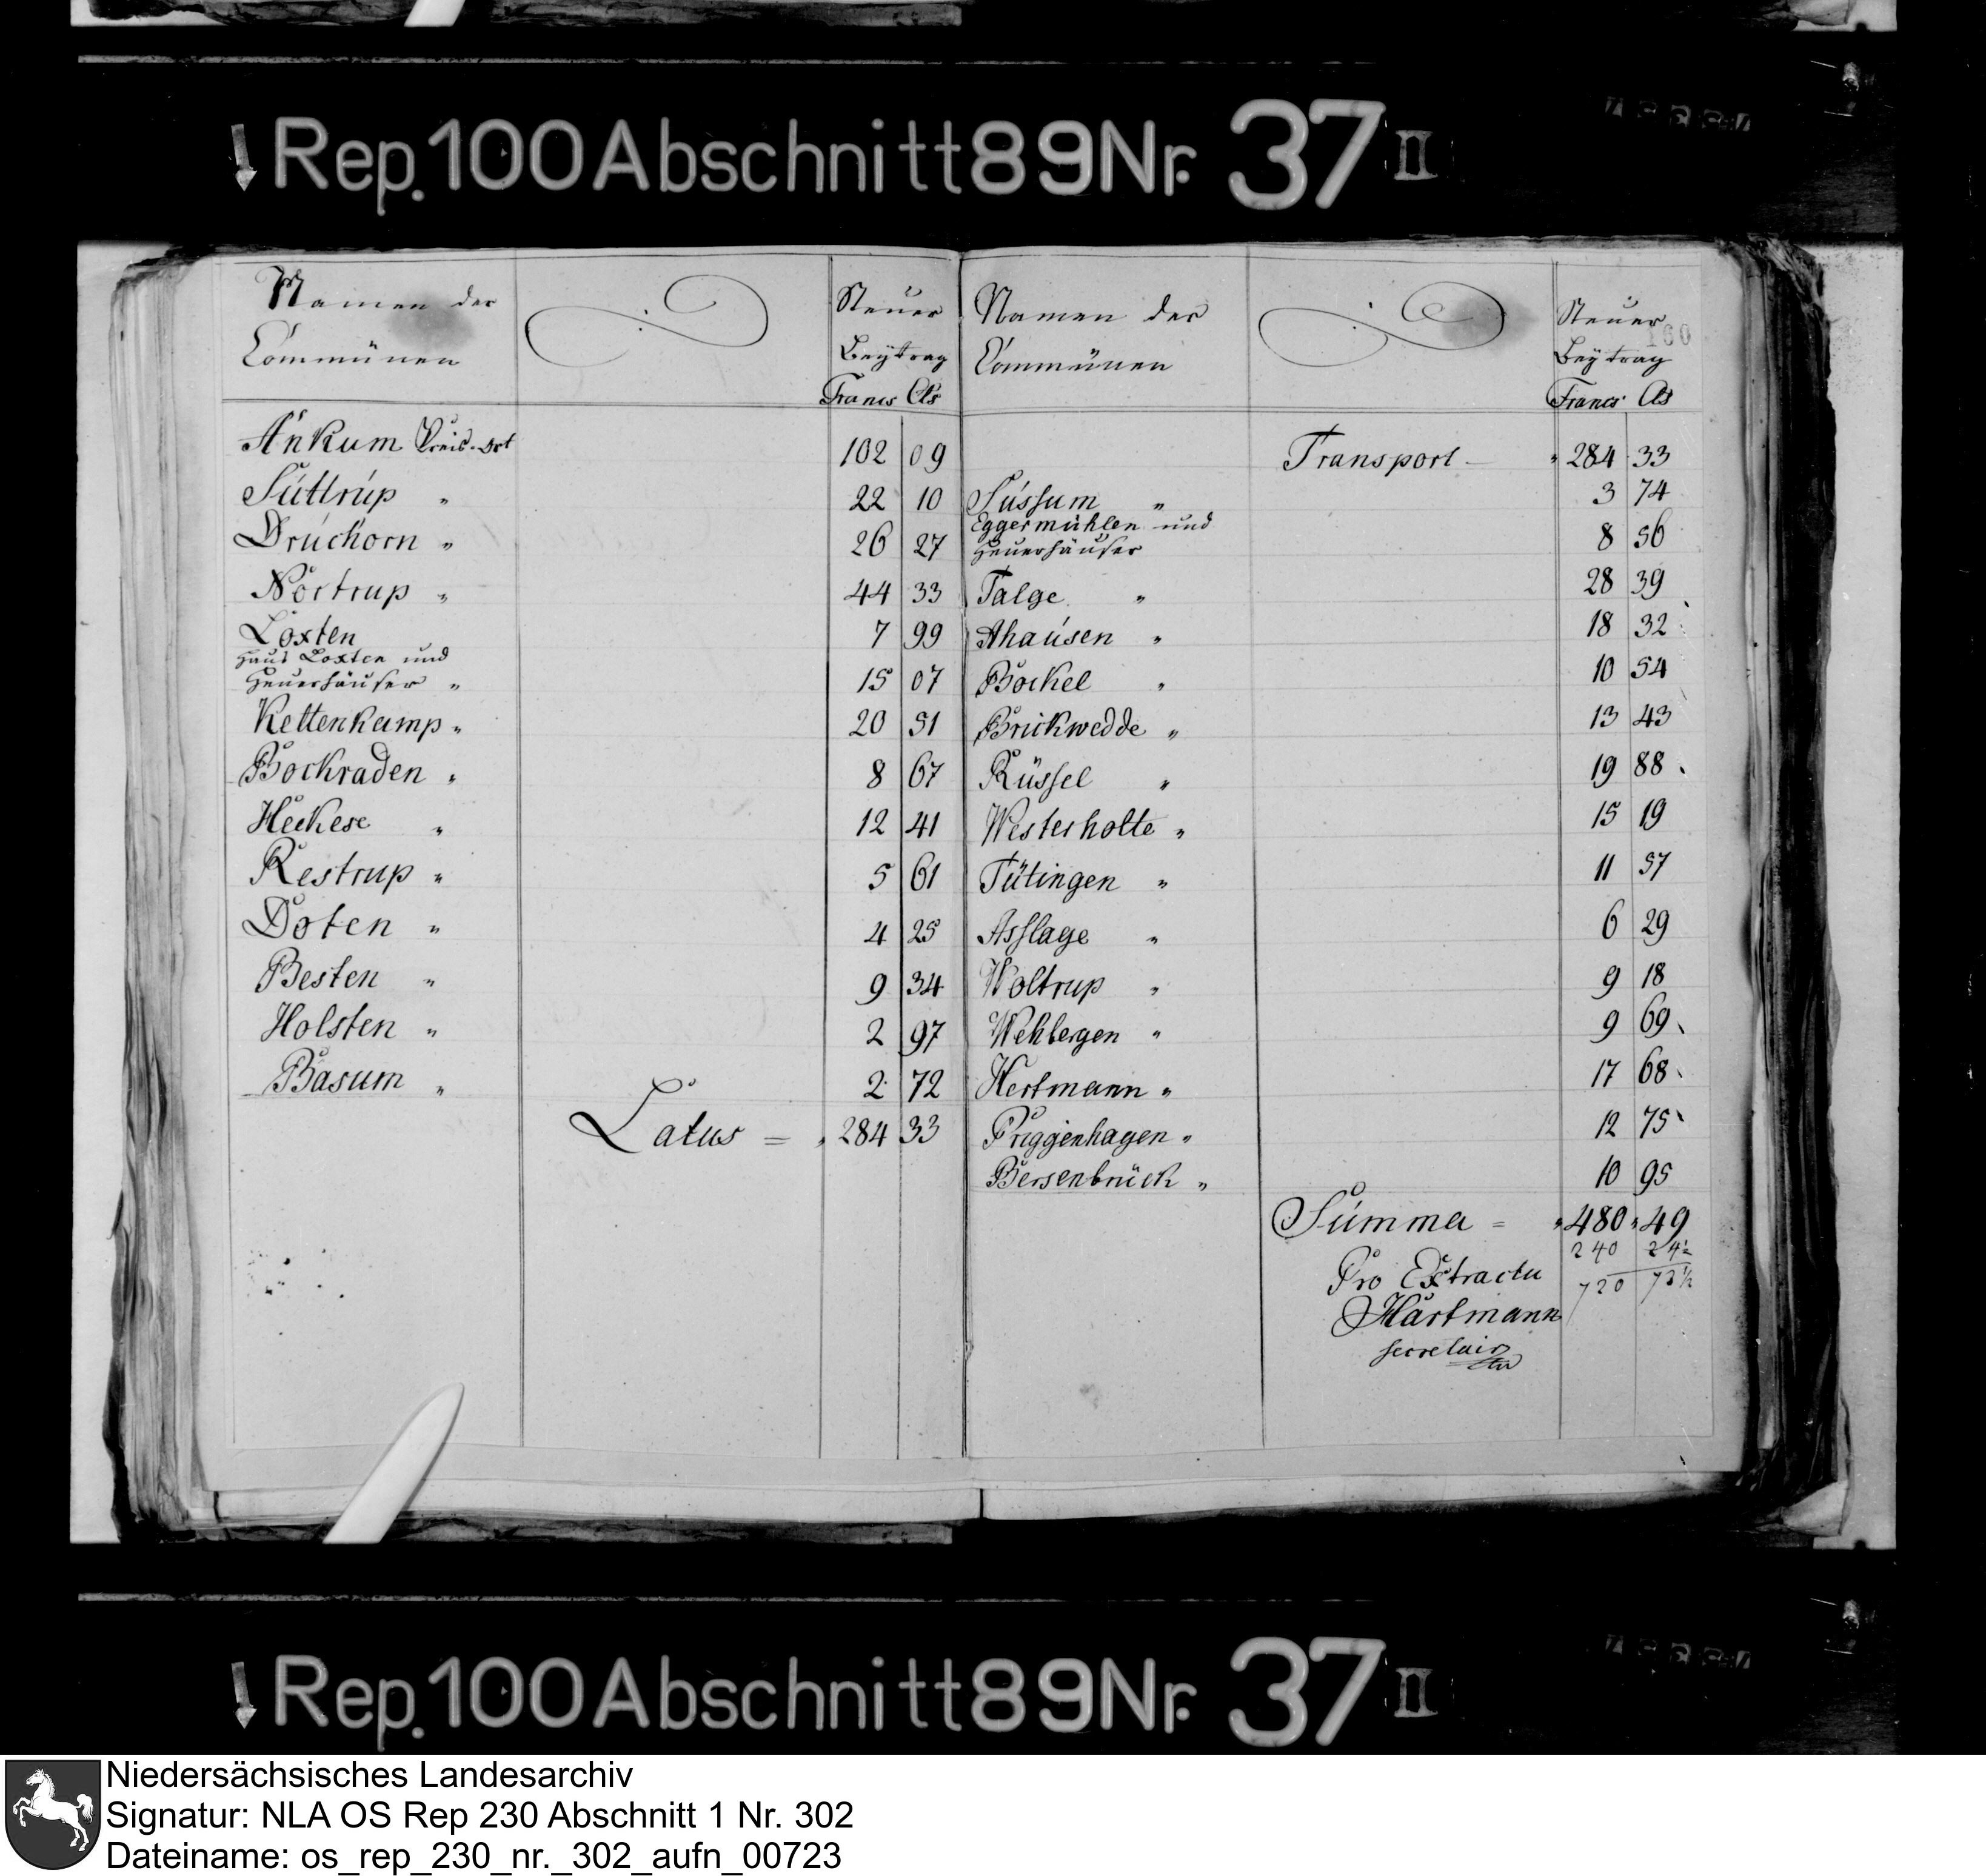 Rep.100 Abschnitt 89 Nr. 37 II
Namen der
Commünen
Steuer
Beytrag
Francs Cts
Ankum Kreis-Ort 102 09
Suttrup " 22 10
Druchorn " 26 27
Nortrup " 44 33
Loxten 7 99
Haus Loxten und
Heuerhäuser " 15 07
Kettenkamp " 20 51
Bockraden " 8 67
Heckese " 12 41
Restrup " 5 61
Doten " 4 25
Besten " 9 34
Holsten " 2 97
Basum " 2 72
Latus = " 284 33
Namen der
Commünen
Steuer
Beytrag
Francs Cts
Transport " 284 33
Sussum " 3 74
Eggermühlen und
Heuerhäuser 8 56
Talge " 28 39
Ahausen " 18 32
Bockel " 10 54
Brickwedde " 13 43
Rüssel " 19 88
Westerholte " 15 19
Tütingen " 11 57
Asslage " 6 29
Woltrup " 9 18
Wehbergen " 9 69
Hertmann " 17 68
Priggenhagen " 12 75
Bersenbrück " 10 95
Summa = " 480 " 49
240 24½
720 73½
Pro Extractu
Hartmann
secretair
Rep.100 Abschnitt 89 Nr. 37 II
Niedersächsisches Landesarchiv
Signatur: NLA OS Rep 230 Abschnitt 1 Nr. 302
Dateiname: os_rep_230_nr._302_aufn_00723